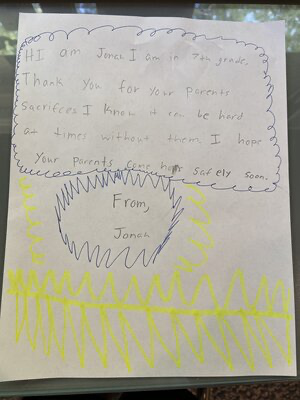 HI am Jonah I am in 7th grade.
Thank you for your parents
Sacrifices I know it can be hard
at times without them. I hope
your parents come home safely soon.
From,
Jonah